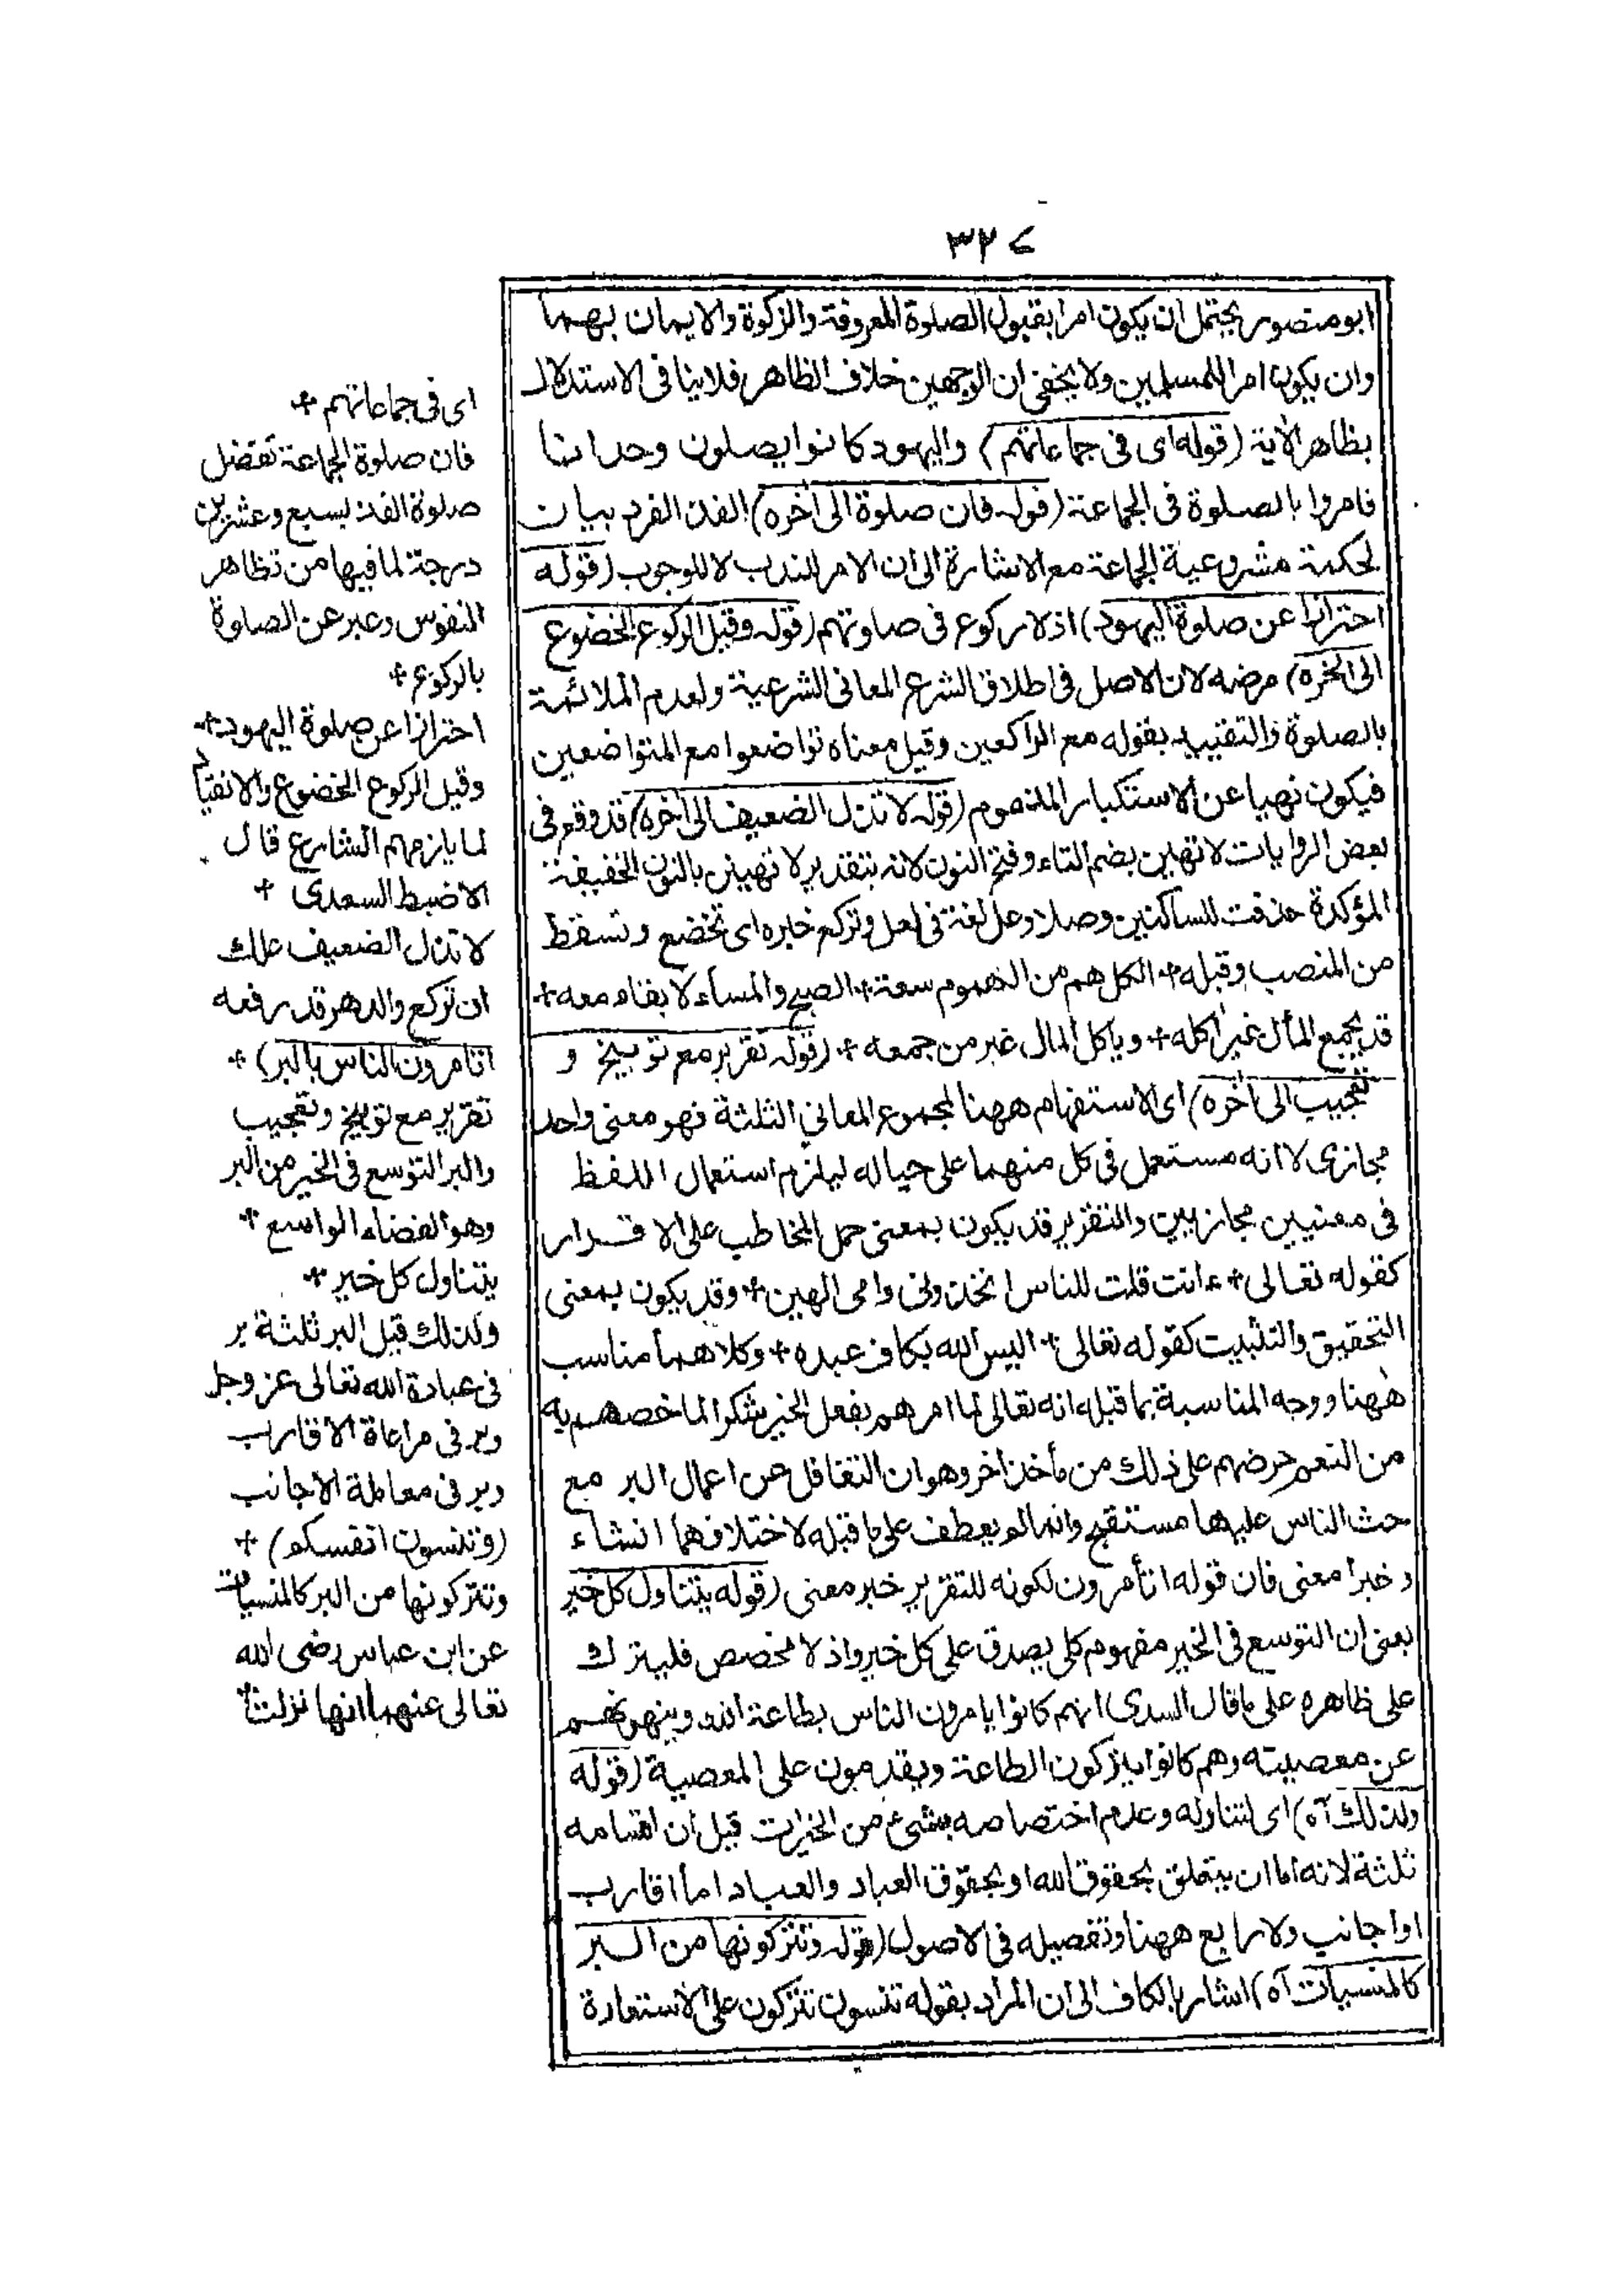 ٣٢٧
ابو منصور يحتمل ان يكون امرا بقبول الصلوة المعروفة والزكوة والايمان بهما
وان يكون امرا للمسلمين ولا يخفى ان الوجهين خلاف الظاهر فلا ينافى الاستدلال
بظاهر الآية (قوله اى فى جماعاتهم) واليهود كانوا يصلون وحدانا
فامروا بالصلوة فى الجماعة (قوله فان صلوة الى آخره) الفذ الفرد بيان
لحكمة مشروعية الجماعة مع الاشارة الى ان الامر للندب لا للوجوب (قوله
احترازا عن صلوة اليهود) اذ لا ركوع فى صلوتهم (قوله وقيل الركوع الخضوع
الى آخره) مرضه لان الاصل فى اطلاق الشرع المعانى الشرعية ولعدم الملائمة
بالصلوة والتقييد بقوله مع الراكعين وقيل معناه تواضعوا مع المتواضعين
فيكون نهيا عن الاستكبار المذموم (قوله لا تذل الضعيف الى آخره) قد وقع فى
بعض الروايات لا تهين بضم التاء وفتح النون لانه بتقدير لا تهينن بالنون الخفيفة
المؤكدة حذفت للساكنين وصلا وعل لغة فى لعل وتركع خبره اى تخضع وتسقط
من المنصب وقبله + الكل هم من الهموم سعة + الصبح والمساء لا بقاء معه +
قد يجمع المال غير آكله + وياكل المال غير من جمعه + (قوله تقرير مع توبيخ و
تعجيب الى آخره) اى الاستفهام ههنا لمجموع المعانى الثلثة فهو معنى واحد
مجازى لا انه مستعمل فى كل منهما على حياله ليلزم استعمال اللفظ
فى معنيين مجازيين والتقرير قد يكون بمعنى حمل المخاطب على الاقرار
كقوله تعالى + ءانت قلت للناس اتخذونى وامى الهين + وقد يكون بمعنى
التحقيق والتثبيت كقوله تعالى + اليس الله بكاف عبده + وكلاهما مناسب
ههنا ووجه المناسبة بما قبله انه تعالى لما امرهم بفعل الخير شكرا لما خصهم به
من النعم حرضهم على ذلك من مأخذ آخر وهو ان التغافل عن اعمال البر مع
حث الناس عليها مستقبح وانما لم يعطف على ما قبله لاختلافهما انشاء
وخبرا معنى فان قوله اتأمرون لكونه للتقرير خبر معنى (قوله يتناول كل خير
يعنى ان التوسع فى الخير مفهوم كلى يصدق على كل خير واذ لا مخصص فليترك
على ظاهره على ما قال السدى انهم كانوا يامرون الناس بطاعة الله وينهونهم
عن معصيته وهم كانوا يتركون الطاعة ويقدمون على المعصية (قوله
ولذلك آه) اى لتناوله وعدم اختصاصه بشئ من الخيرات قيل ان اقسامه
ثلثة لانه اما ان يتعلق بحقوق الله او بحقوق العباد والعباد اما اقارب
او اجانب ولا رابع ههنا وتفصيله فى الاصول (قوله وتتركونها من البر
كالمنسيات آه) اشار بالكاف الى ان المراد بقوله تنسون تتركون على الاستعارة
اى فى جماعاتهم +
فان صلوة الجماعة تفضل
صلوة الفذ بسبع وعشرين
درجة لما فيها من تظاهر
النفوس وعبر عن الصلوة
بالركوع +
احترازا عن صلوة اليهود +
وقيل الركوع الخضوع والانقياد
لما يلزمهم الشارع قال
الاضبط السعدى +
لا تذل الضعيف علك
ان تركع والدهر قد رفعه
(اتامرون الناس بالبر) +
تقرير مع توبيخ وتعجيب
والبر التوسع فى الخير من البر
وهو الفضاء الواسع +
يتناول كل خير +
ولذلك قيل البر ثلثة بر
فى عبادة الله تعالى عز وجل
وبر فى مراعاة الاقارب
وبر فى معاملة الاجانب
(وتنسون انفسكم) +
وتتركونها من البر كالمنسيات
عن ابن عباس رضى الله
تعالى عنهما انها نزلت